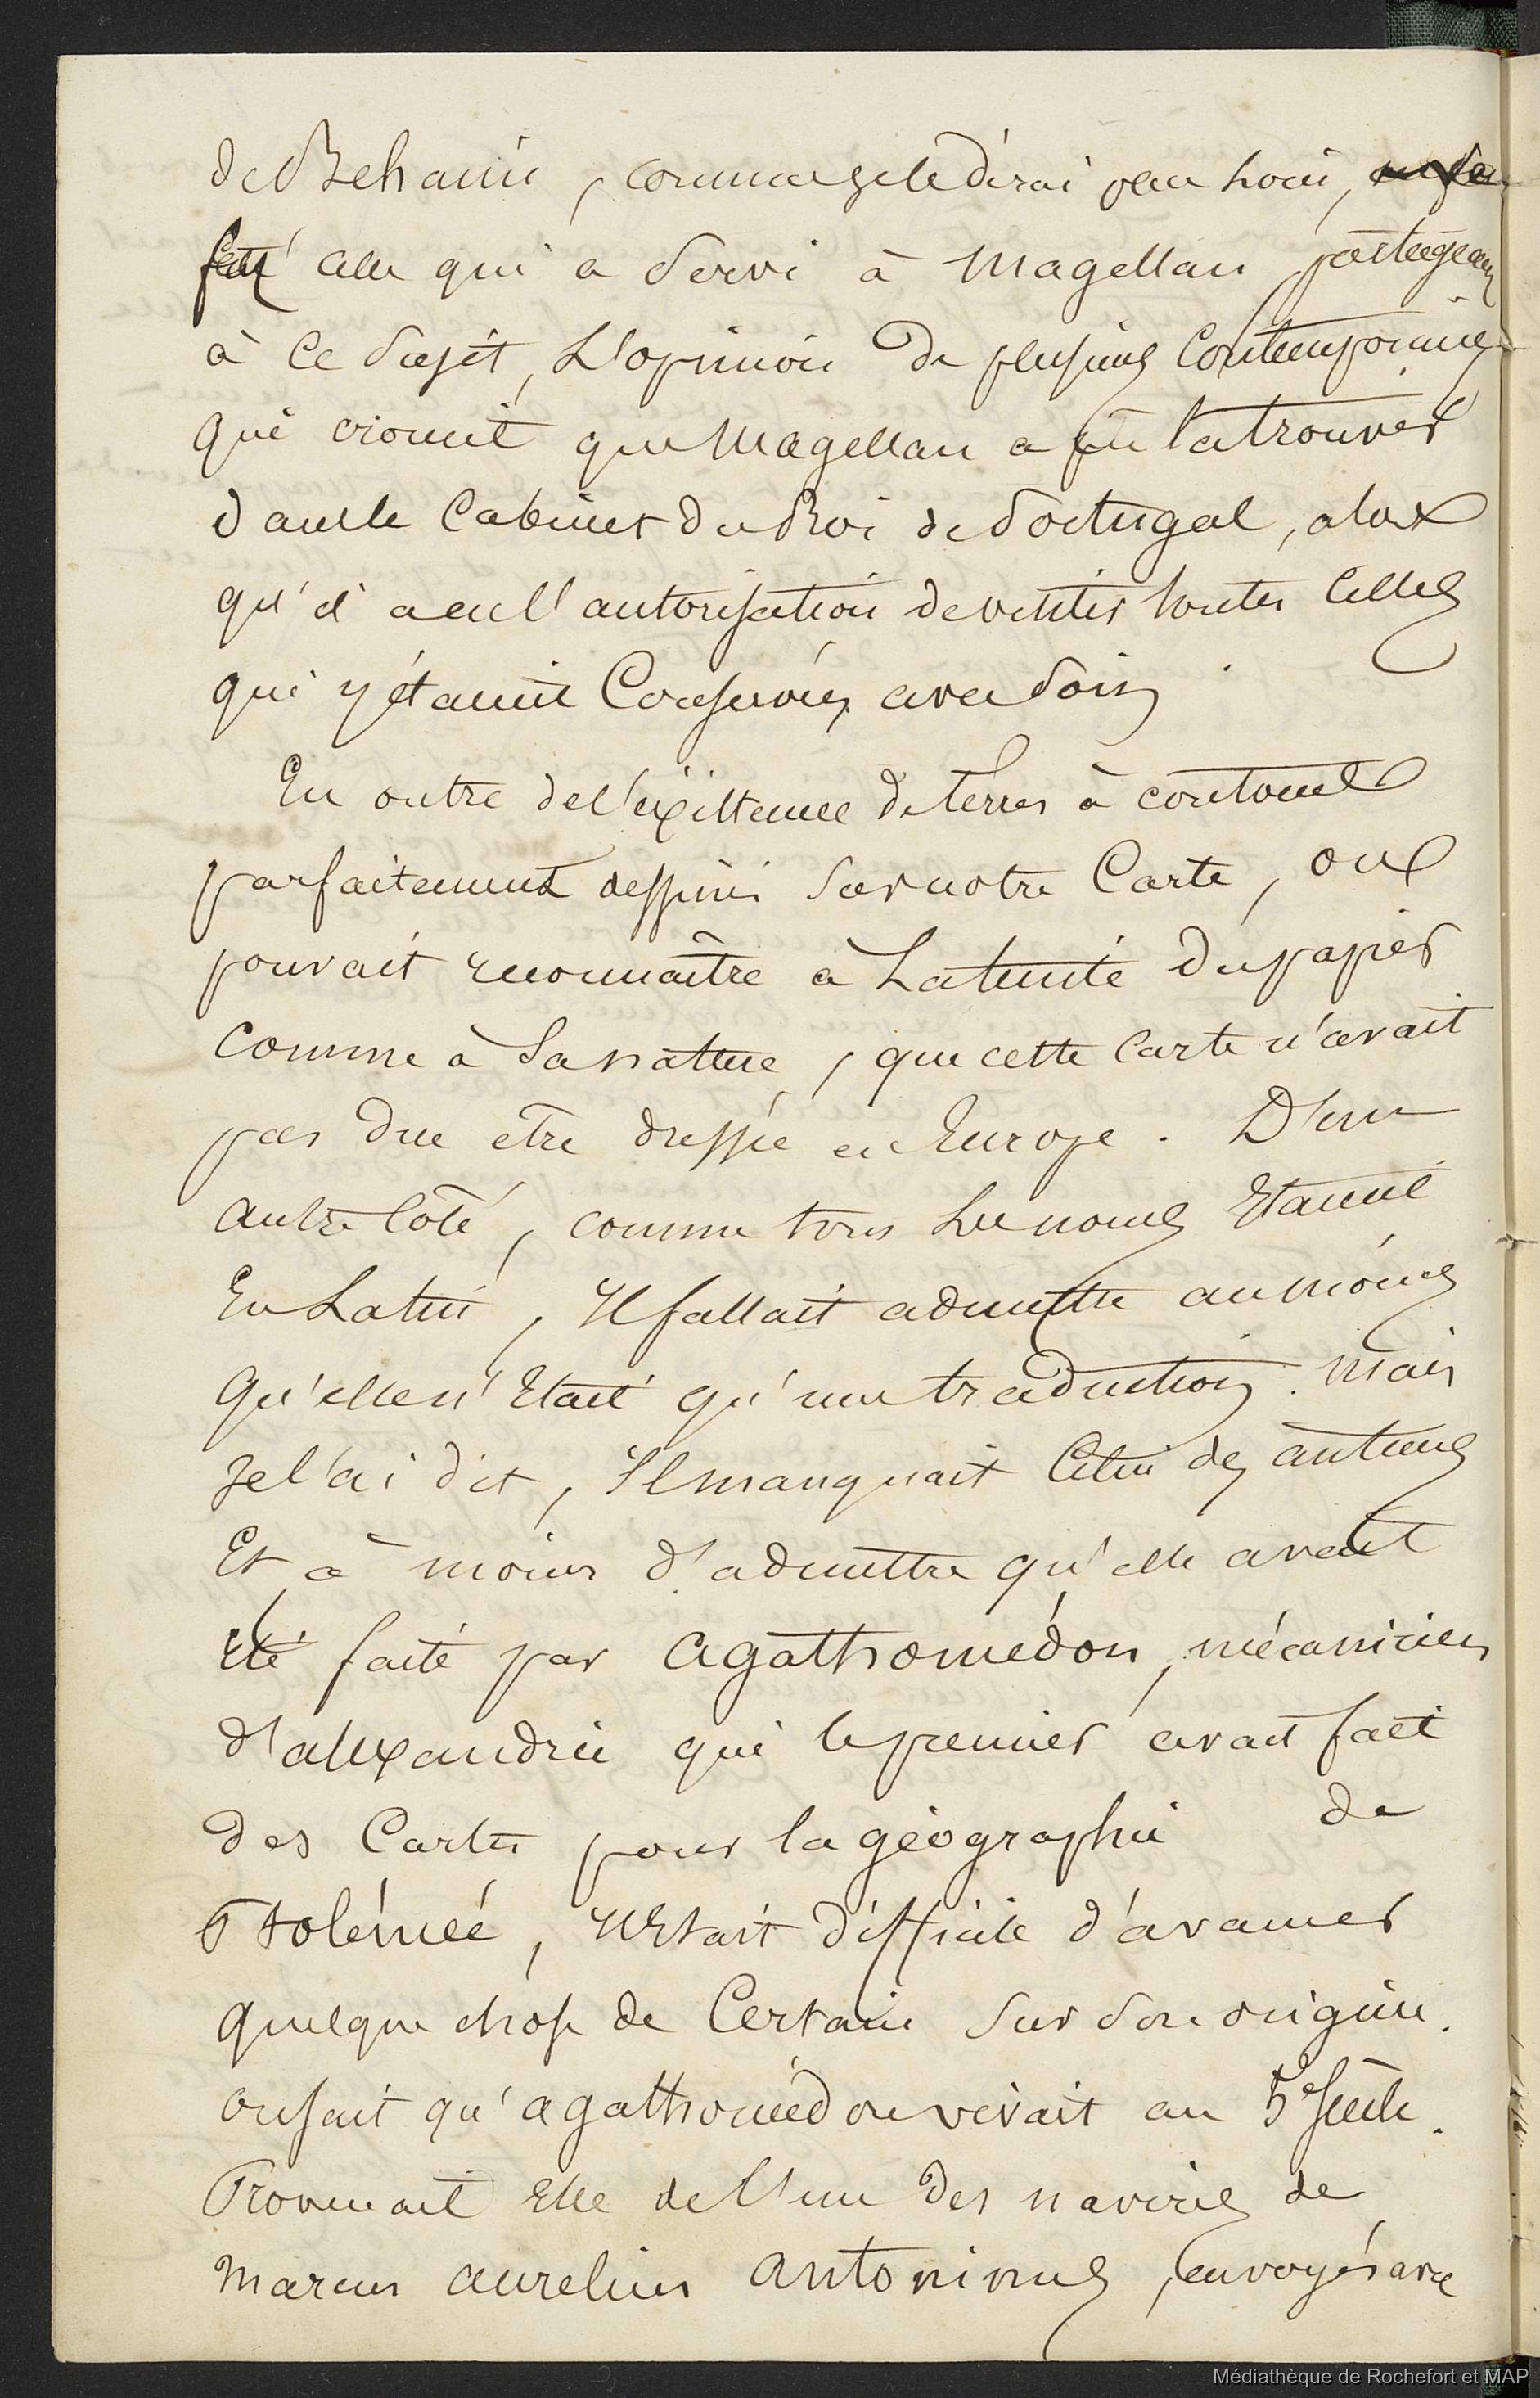 de Behaim, comme je le dirai plus loin,
celle qui a servi à Magellan partageant
à ce sujet, L'opinion de plusieurs Contemporains
qui croient que Magellan a pu la trouver
dans le Cabinet du Roi de Portugal, alors
qu'il a eu l'autorisation de visiter toutes celles
qui y étaient Conservées avec soin
En outre de l'éxistence de terres à contours
parfaitement dessinés sur notre Carte, on
pouvait reconnaître à La teinte du papier
comme à Sa nature, que cette Carte n'avait
pas due être dressée en Europe. D'un
autre Côté, comme tous Les noms Etaient
En Latin, Il fallait admettre au moins
qu'elle n'Etait qu'une traduction. mais
Je l'ai dit, Il manquait Celui des auteurs
Et à moins d'admettre qu'elle avait
Eté faite par Agathomédon, mécanicien
d'alexandrie qui le premier avait fait
des Cartes pour la géographie de
Ptolémée, Il Etait difficile d'avancer
quelque chose de Certain Sur Son origine.
on sait qu'agathomédon vivait au 5e siècle.
Provenait Elle de l'un des navires de
Marcus aurelius Antoninus, envoyés avec
Médiathèque de Rochefort et MAP